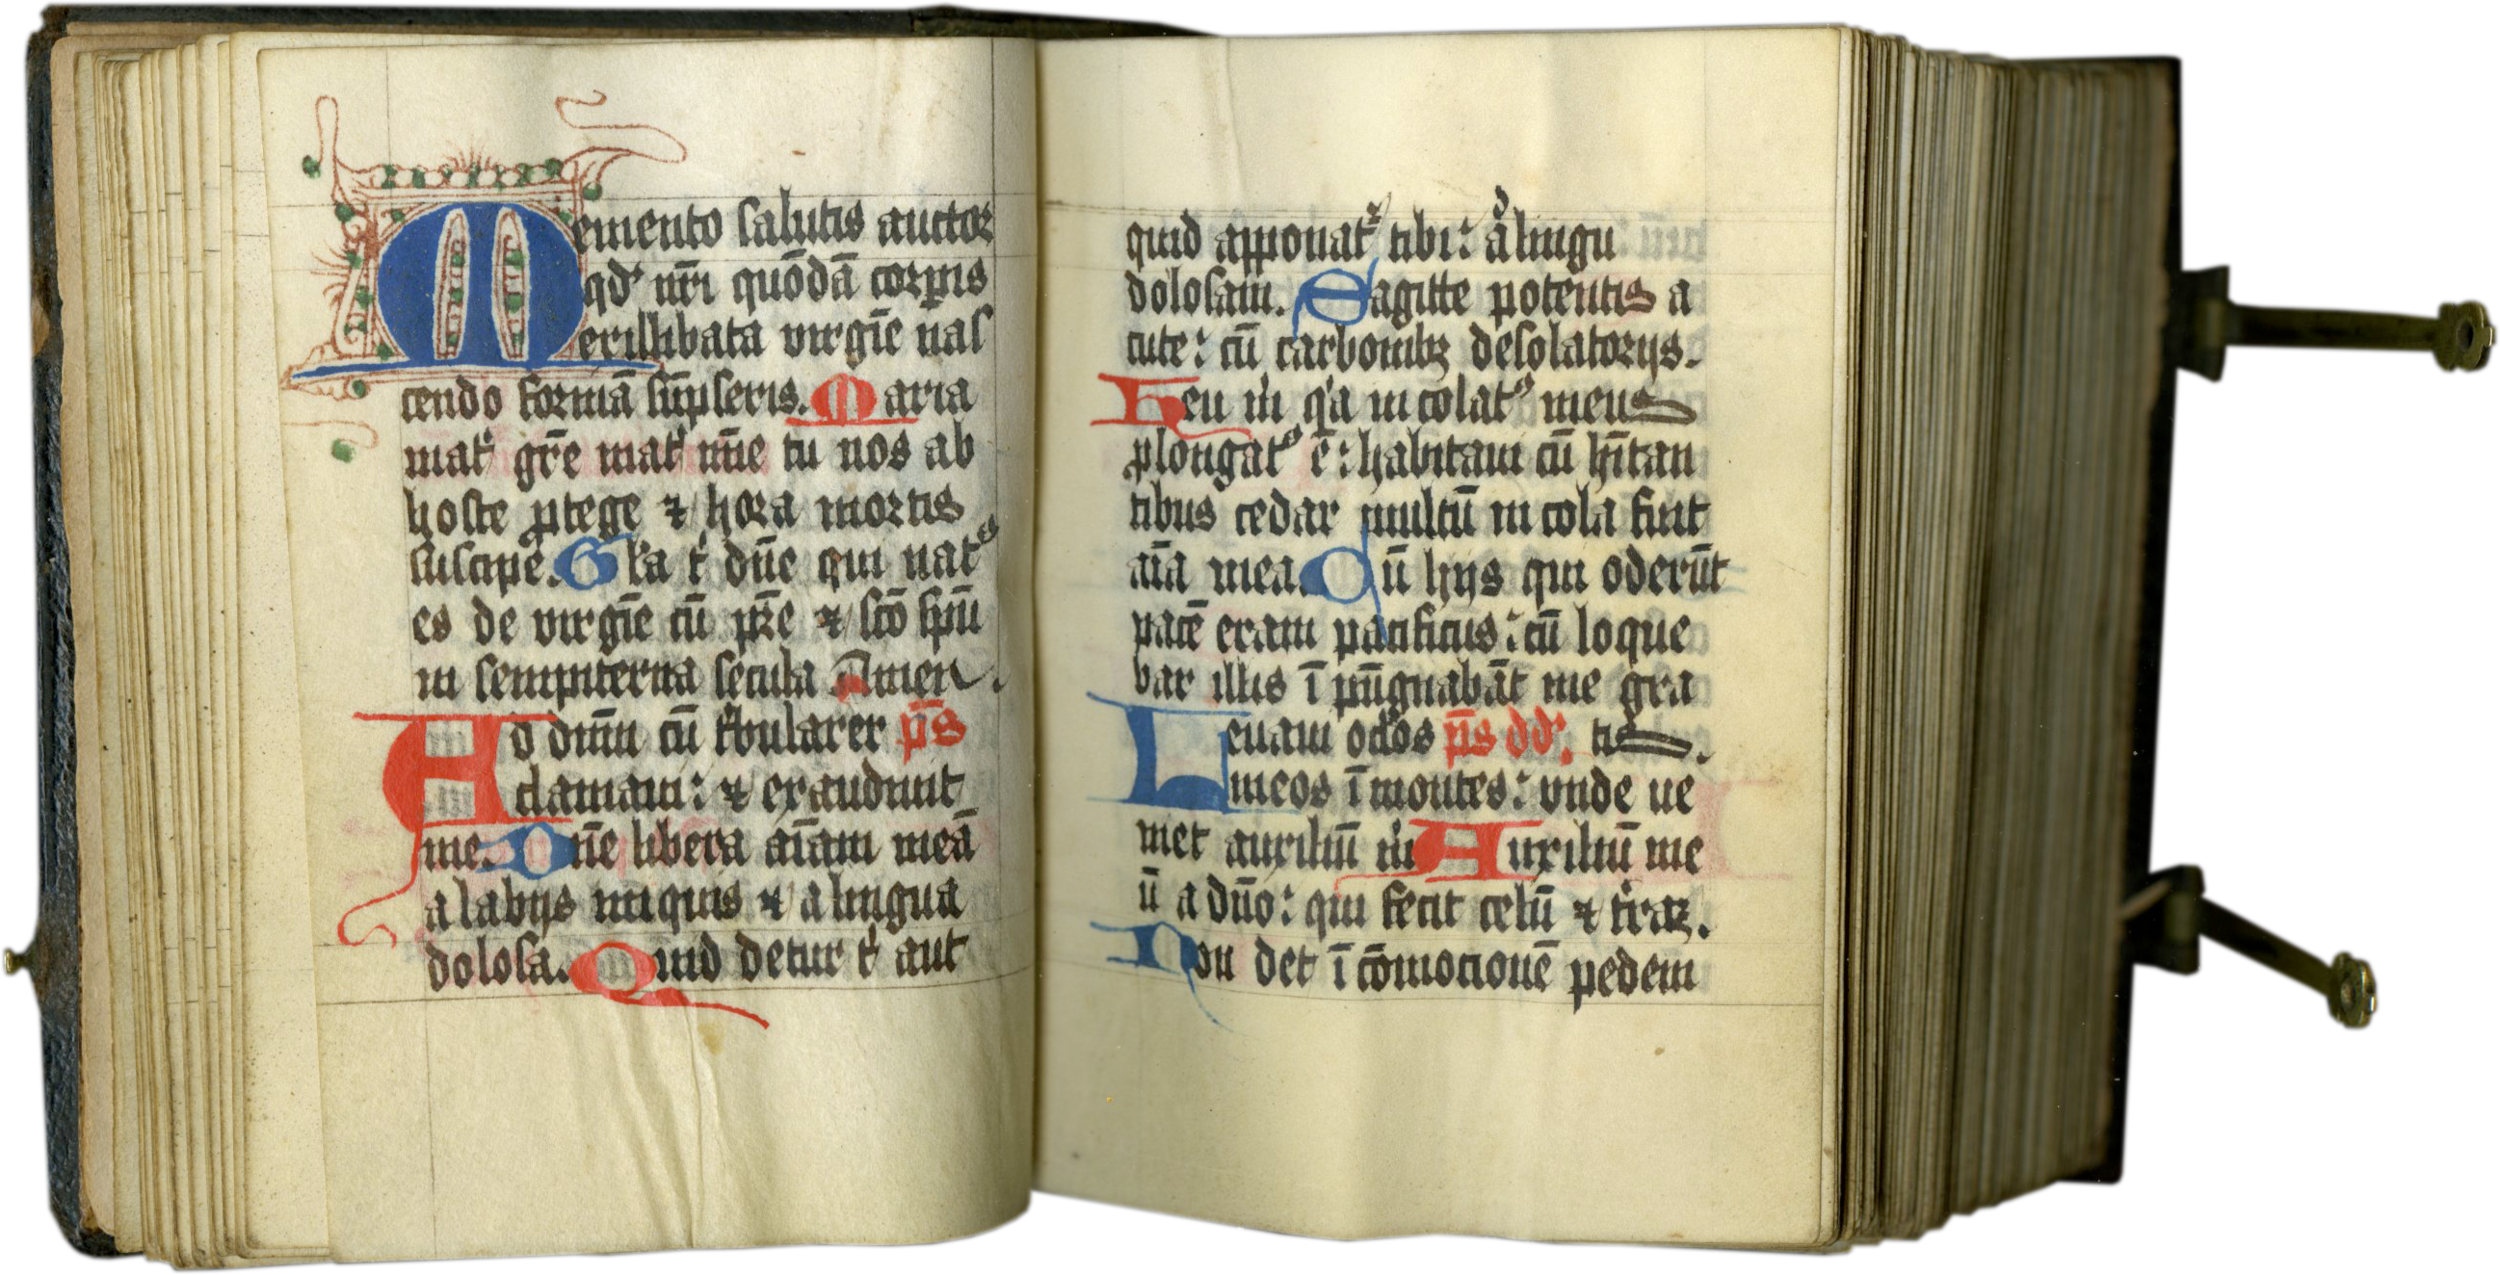 Memento salutis auctor
qd' nr̄i quōdā corp̄is
ex illibata virgīe nas
cendo formā sūpseris. Maria
mat' gr̄e mat' mīe tu nos ab
hoste ꝓtege ⁊ hora mortis
suscipe. Gl'a t' dn̄e qui nat⁹
es de virgīe cū pr̄e ⁊ sc̄o sp̄u
in sempiterna secula Amen.
Ad dn̄m cū t'bularer p̄s
clamaui: ⁊ exaudiuit
me. Dn̄e libera aīam meā
a labijs iniquis ⁊ a lingua
dolosa. Quid detur t' aut
quid apponat᷑ tibi: a lingu
dolosam. Sagitte potentis a
cute: cū carbonibꝫ desolatorijs.
Heu m' q'a incolat⁹ meus
ꝓlongat⁹ ē: habitaui cū hītan
tibus cedar multū incola fuit
aīa mea. Cū hijs qui oderūt
pacē eram pacificus: cū loque
bar illis īpūgnabāt me gra
Leuaui oc'los p̄s dd'. tis.
meos ī montes: vnde ue
niet auxiliū m'. Auxiliū me
ū a dn̄o: qui fecit celū ⁊ t'rā.
Non det ī cōmocionē pedem